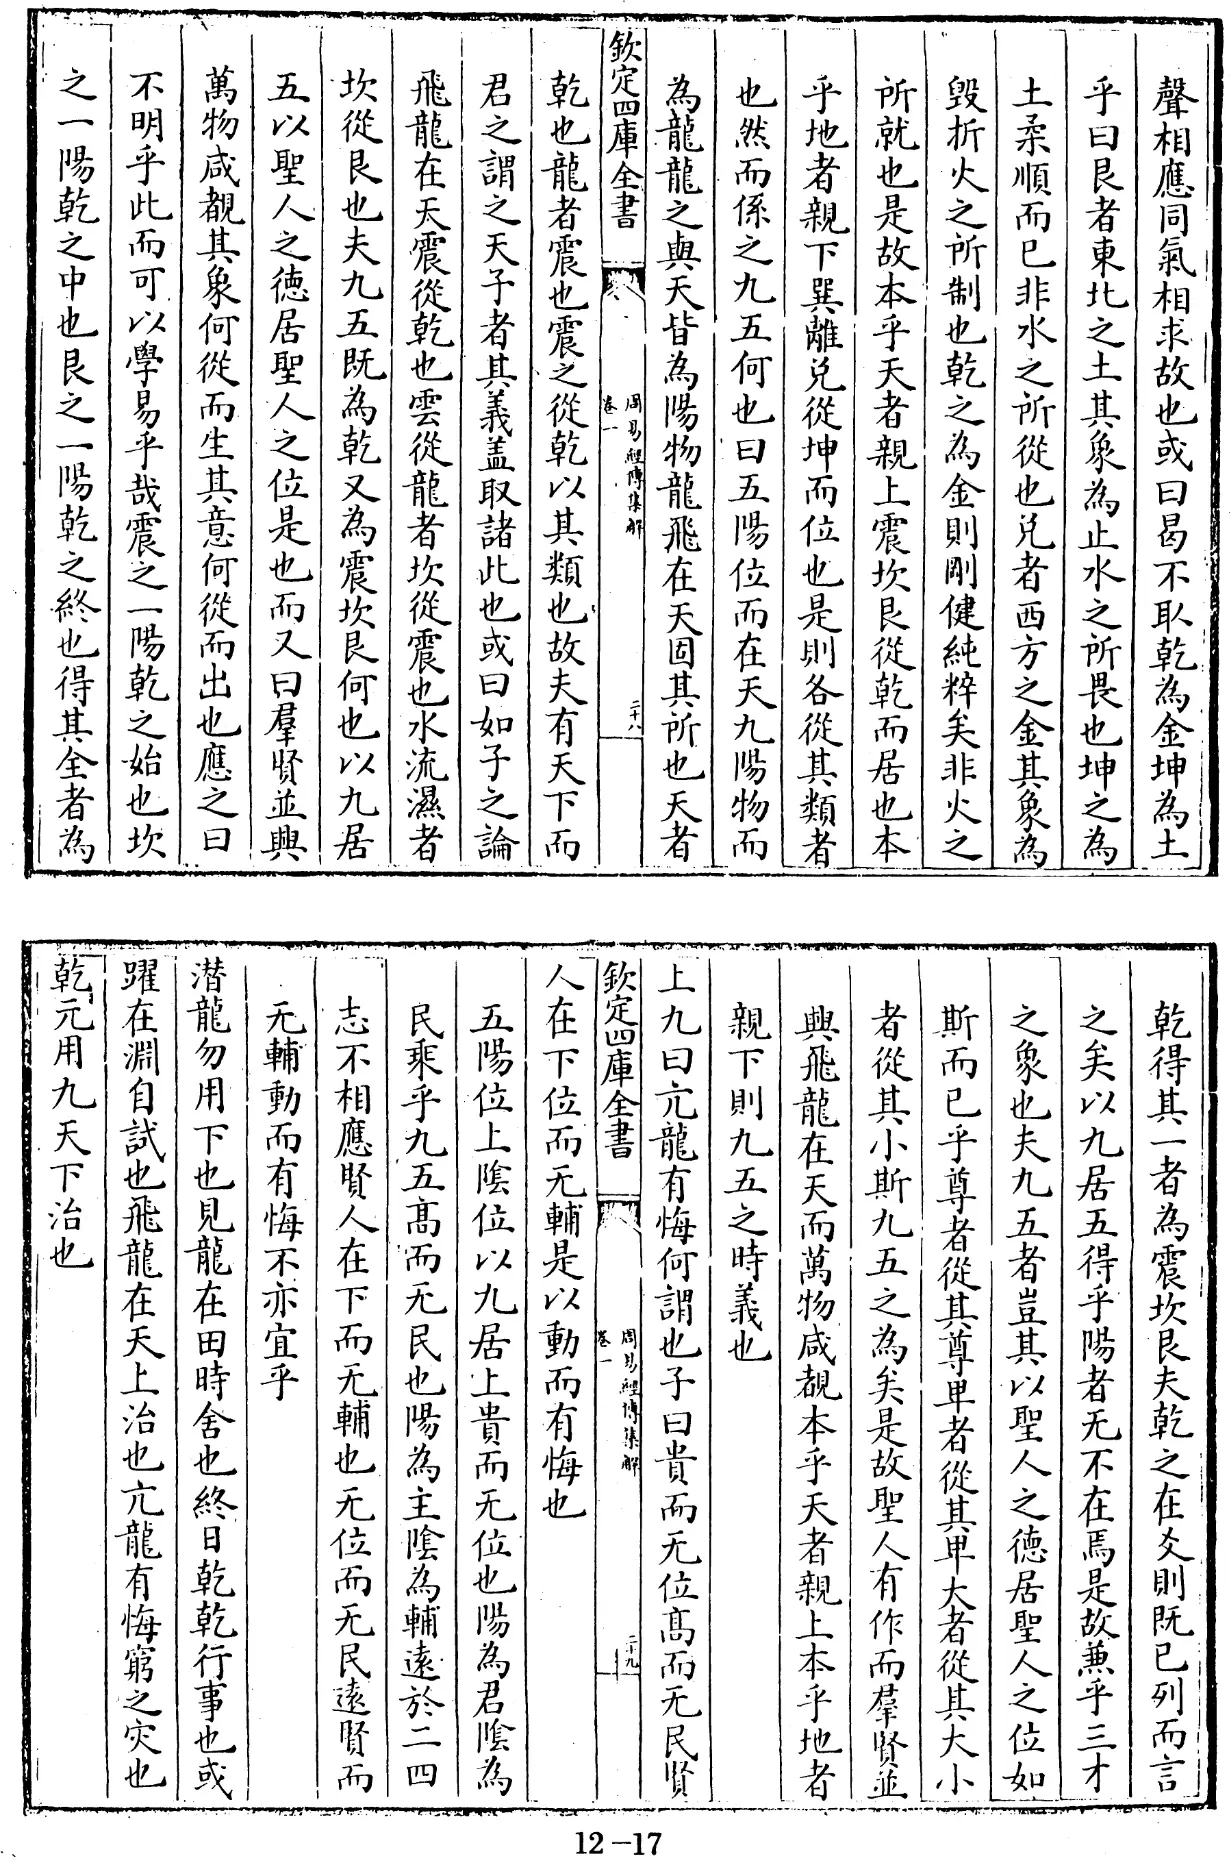 聲相應同氣相求故也或曰曷不取乾為金坤為土
乎曰艮者東北之土其象為止水之所畏也坤之為
土柔順而已非水之所從也兌者西方之金其象為
毀折火之所制也乾之為金則剛健純粹矣非火之
所就也是故本乎天者親上震坎艮從乾而居也本
乎地者親下巽離兌從坤而位也是則各從其類者
也然而係之九五何也曰五陽位而在天九陽物而
為龍龍之與天皆為陽物龍飛在天固其所也天者
欽定四庫全書
周易經傳集解
卷一
二十八
乾也龍者震也震之從乾以其類也故夫有天下而
君之謂之天子者其義盖取諸此也或曰如子之論
飛龍在天震從乾也雲從龍者坎從震也水流濕者
坎從艮也夫九五既為乾又為震坎艮何也以九居
五以聖人之德居聖人之位是也而又曰羣賢並興
萬物咸覩其象何從而生其意何從而出也應之曰
不明乎此而可以學易乎哉震之一陽乾之始也坎
之一陽乾之中也艮之一陽乾之終也得其全者為
乾得其一者為震坎艮夫乾之在爻則既已列而言
之矣以九居五得乎陽者无不在焉是故兼乎三才
之象也夫九五者豈其以聖人之德居聖人之位如
斯而已乎尊者從其尊卑者從其卑大者從其大小
者從其小斯九五之為矣是故聖人有作而羣賢並
興飛龍在天而萬物咸覩本乎天者親上本乎地者
親下則九五之時義也
上九曰亢龍有悔何謂也子曰貴而无位髙而无民賢
欽定四庫全書
周易經傳集解
卷一
二十九
人在下位而无輔是以動而有悔也
五陽位上陰位以九居上貴而无位也陽為君陰為
民乘乎九五髙而无民也陽為主陰為輔遠於二四
志不相應賢人在下而无輔也无位而无民遠賢而
无輔動而有悔不亦宜乎
潜龍勿用下也見龍在田時舍也終日乾乾行事也或
躍在淵自試也飛龍在天上治也亢龍有悔窮之灾也
乾元用九天下治也
12-17